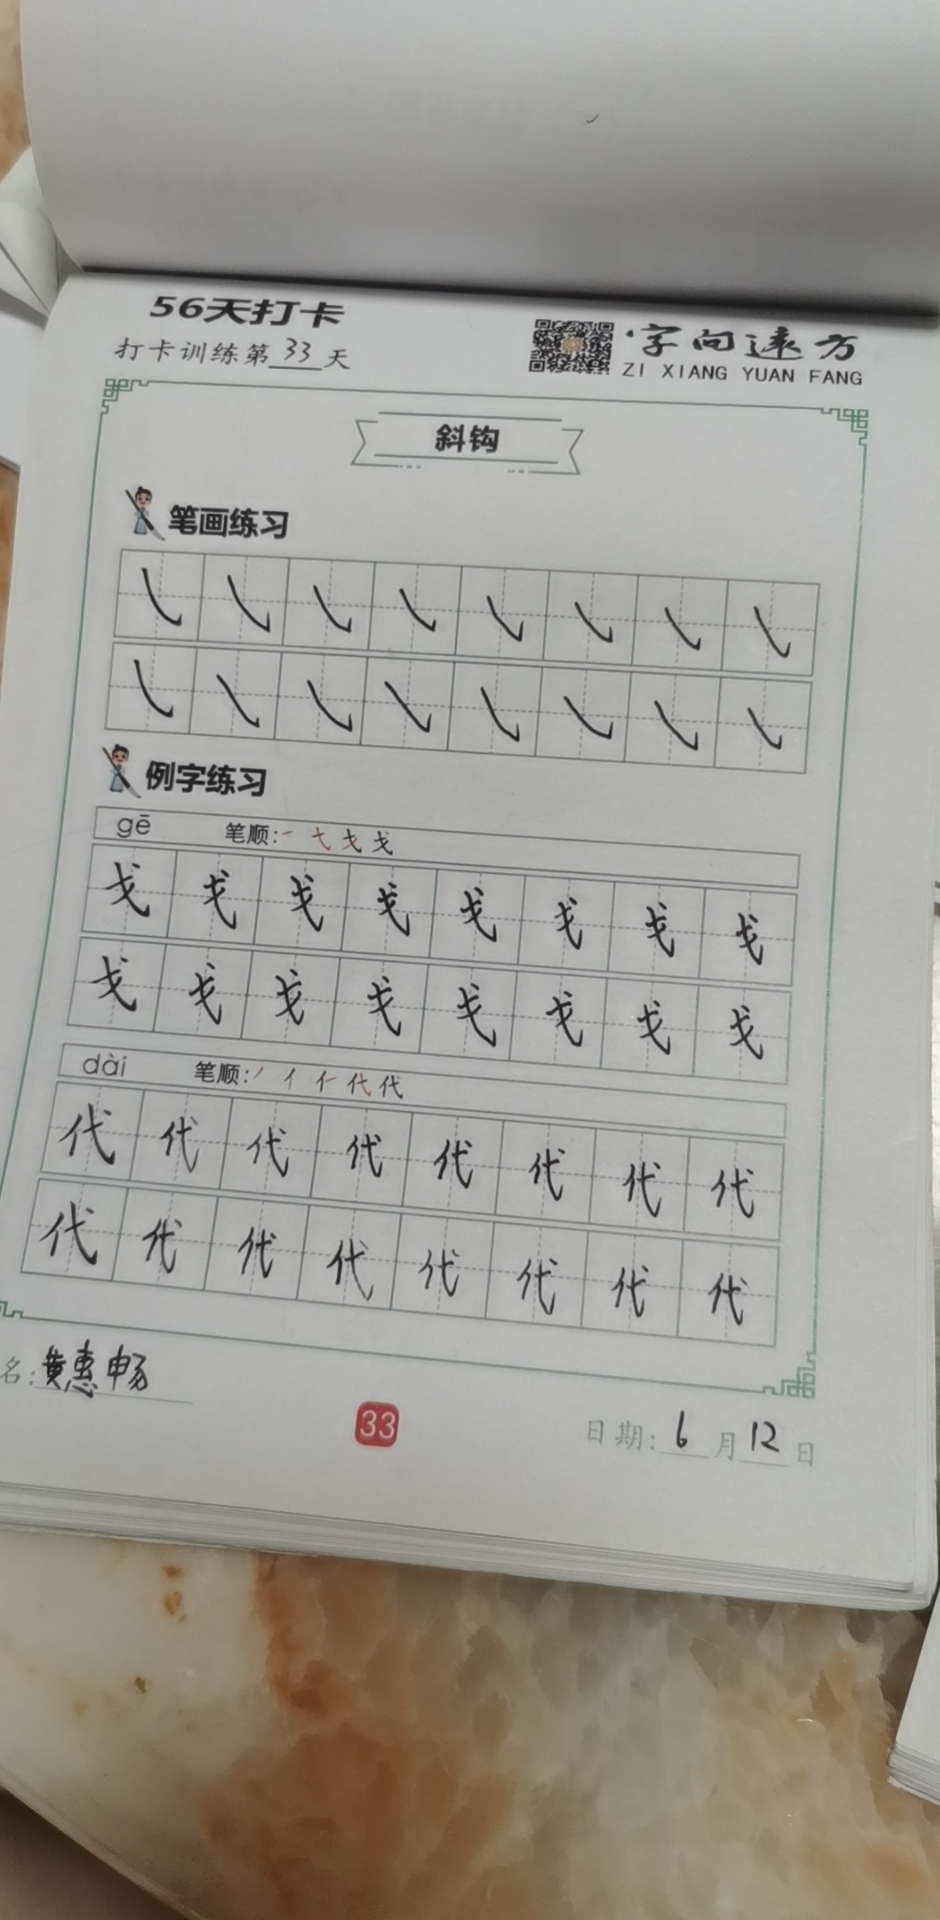 56天打卡
打卡训练第33天
字向远方
ZI XIANG YUAN FANG
斜钩
笔画练习
㇂㇂㇂㇂㇂㇂㇂㇂
㇂㇂㇂㇂㇂㇂㇂㇂
例字练习
gē 笔顺:㇐ 七 戈 戈
戈戈戈戈戈戈戈戈
戈戈戈戈戈戈戈戈
dài 笔顺:丿 亻 仁 代 代
代代代代代代代代
代代代代代代代代
名:黄惠畅
33
日期:6月12日